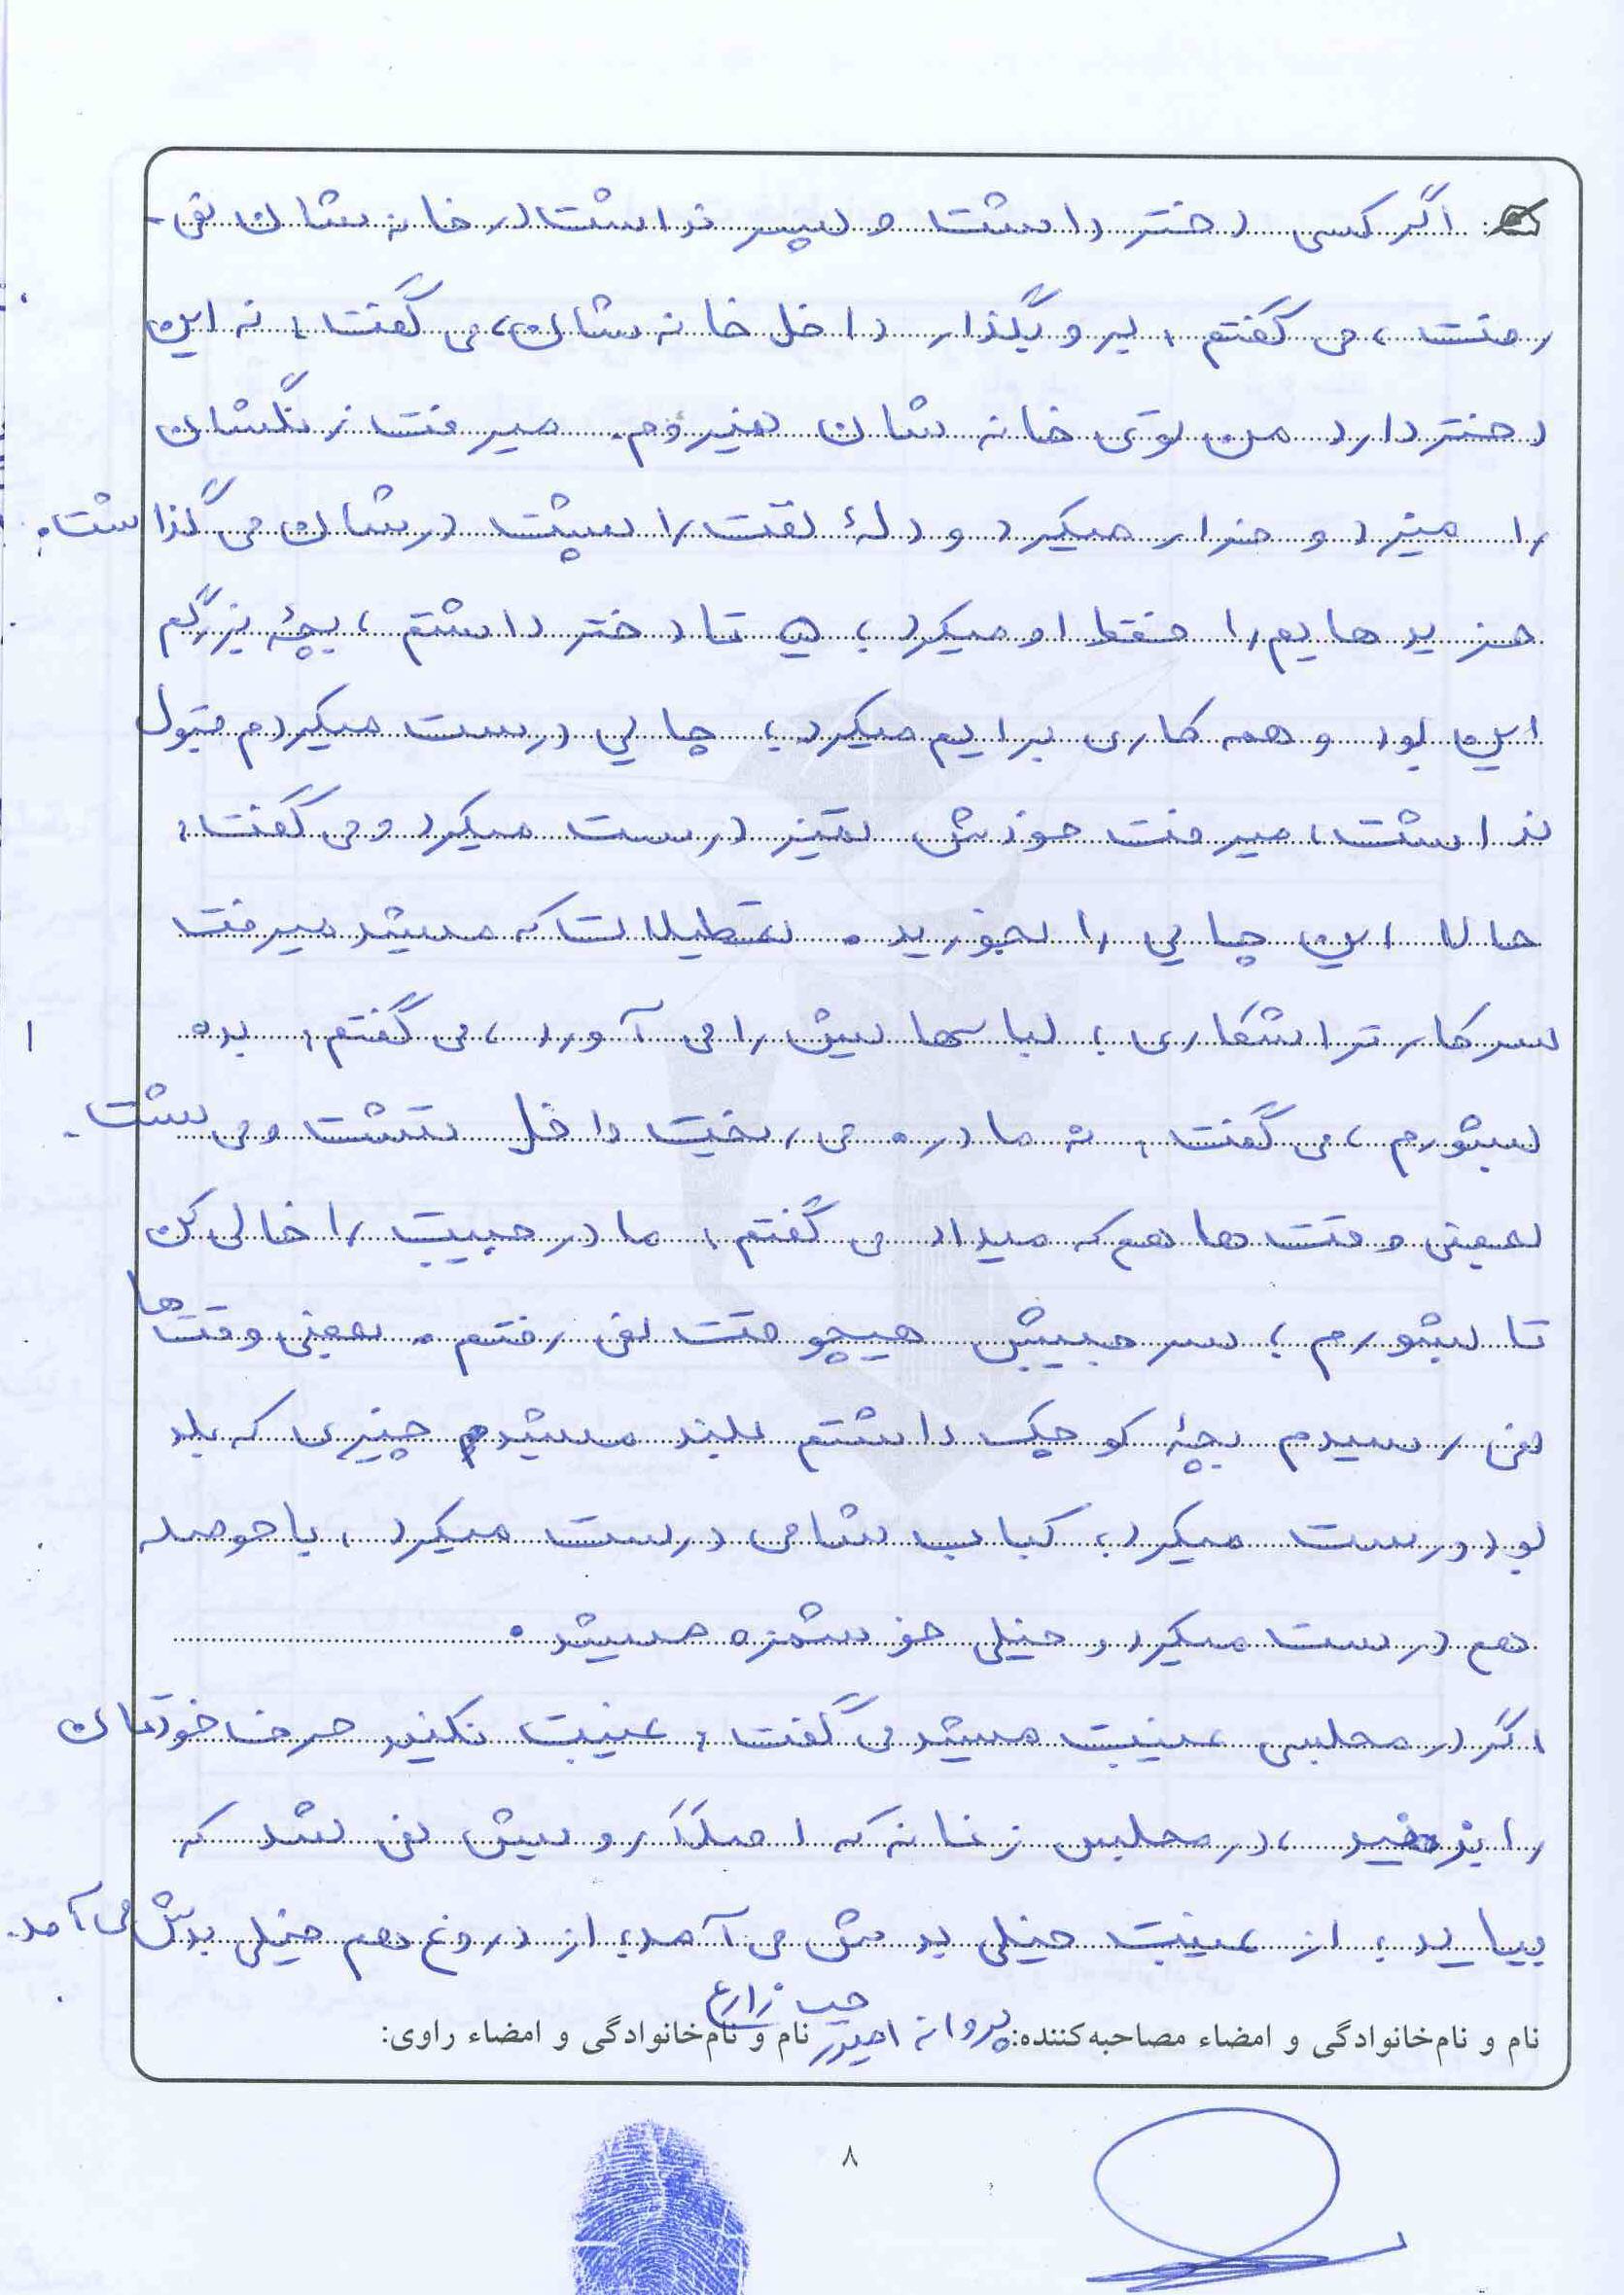 اگر کسی دختر داشت و پسر نداشت در خانه شان نمی
رفت، می گفتم: برو بگذار داخل خانه شان، می گفت: نه این
دختر دارد من توی خانه شان نمیروم. میرفت زنگشان
را میزد و فرار میکرد و دلهٔ نفت را پشت درشان می گذاشت.
خریدهایم را فقط او میکرد، ۵ تا دختر داشتم، بچهٔ بزرگم
این بود و همه کاری برایم میکرد؛ چایی درست میکردم قبول
نداشت، میرفت خودش تمیز درست میکرد و می گفت:
حالا این چایی را بخورید. تعطیلات که میشد میرفت
سر کار تراشکاری؛ لباسهایش را می آورد، می گفتم: بده
بشورم، می گفت: نه مادر. می ریخت داخل تشت و می شست.
بعضی وقت ها هم که میداد می گفتم: مادر جیبت را خالی کن
تا بشورم؛ سر جیبش هیچوقت نمی رفتم. بعضی وقت ها
نمی رسیدم بچهٔ کوچک داشتم بلند میشد چیزی که بلد
بود درست میکرد، کباب شامی درست میکرد، با حوصله
هم درست میکرد و خیلی خوشمزه میشد.
اگر در مجلسی غیبت میشد می گفت: غیبت نکنید حرف خودتان
را بزنید، در مجلس زنانه که اصلاً رویش نمی شد که
بیاید؛ از غیبت خیلی بدش می آمد، از دروغ هم خیلی بدش می آمد.
نام و نام‌خانوادگی و امضاء مصاحبه‌کننده: پروانه امیدزارع نام و نام‌خانوادگی و امضاء راوی:
۸